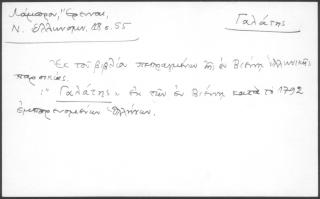 Λάμπρου, "Έρευναι,
Ν. Ἑλληνομν. 18 σ. 55
Γαλάτης
Ἐκ τοῦ βιβλίου πεπραγμένων τῆς ἐν Βιέννῃ ἑλληνικῆς
παροικίας.
"Γαλάτης" ἐκ τῶν ἐν Βιέννῃ κατὰ τὸ 1792
ἐμπορευομένων Ἑλλήνων.